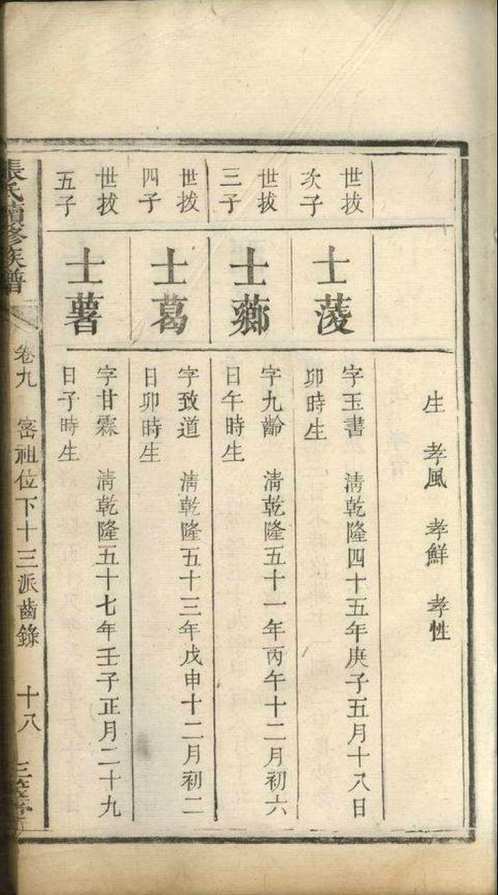 生 孝風 孝鮮 孝性
世拔
次子
士蔆
字玉書 清乾隆四十五年庚子五月十八日
卯時生
世拔
三子
士薌
字九齡 清乾隆五十一年丙午十二月初六
日午時生
世拔
四子
士葛
字致道 清乾隆五十三年戊申十二月初二
日卯時生
世拔
五子
士薯
字甘霖 清乾隆五十七年壬子正月二十九
日子時生
張氏續修族譜
卷九 密祖位下十三派齒錄 十八